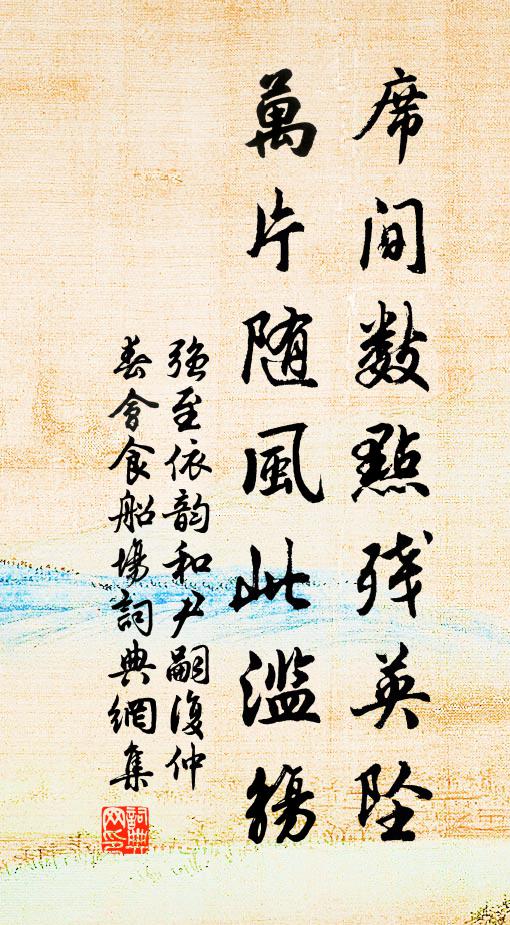 席間數點殘英墜
萬片随風此濫觴
強至依韵和尹嗣復仲
春會食船場詞典網集